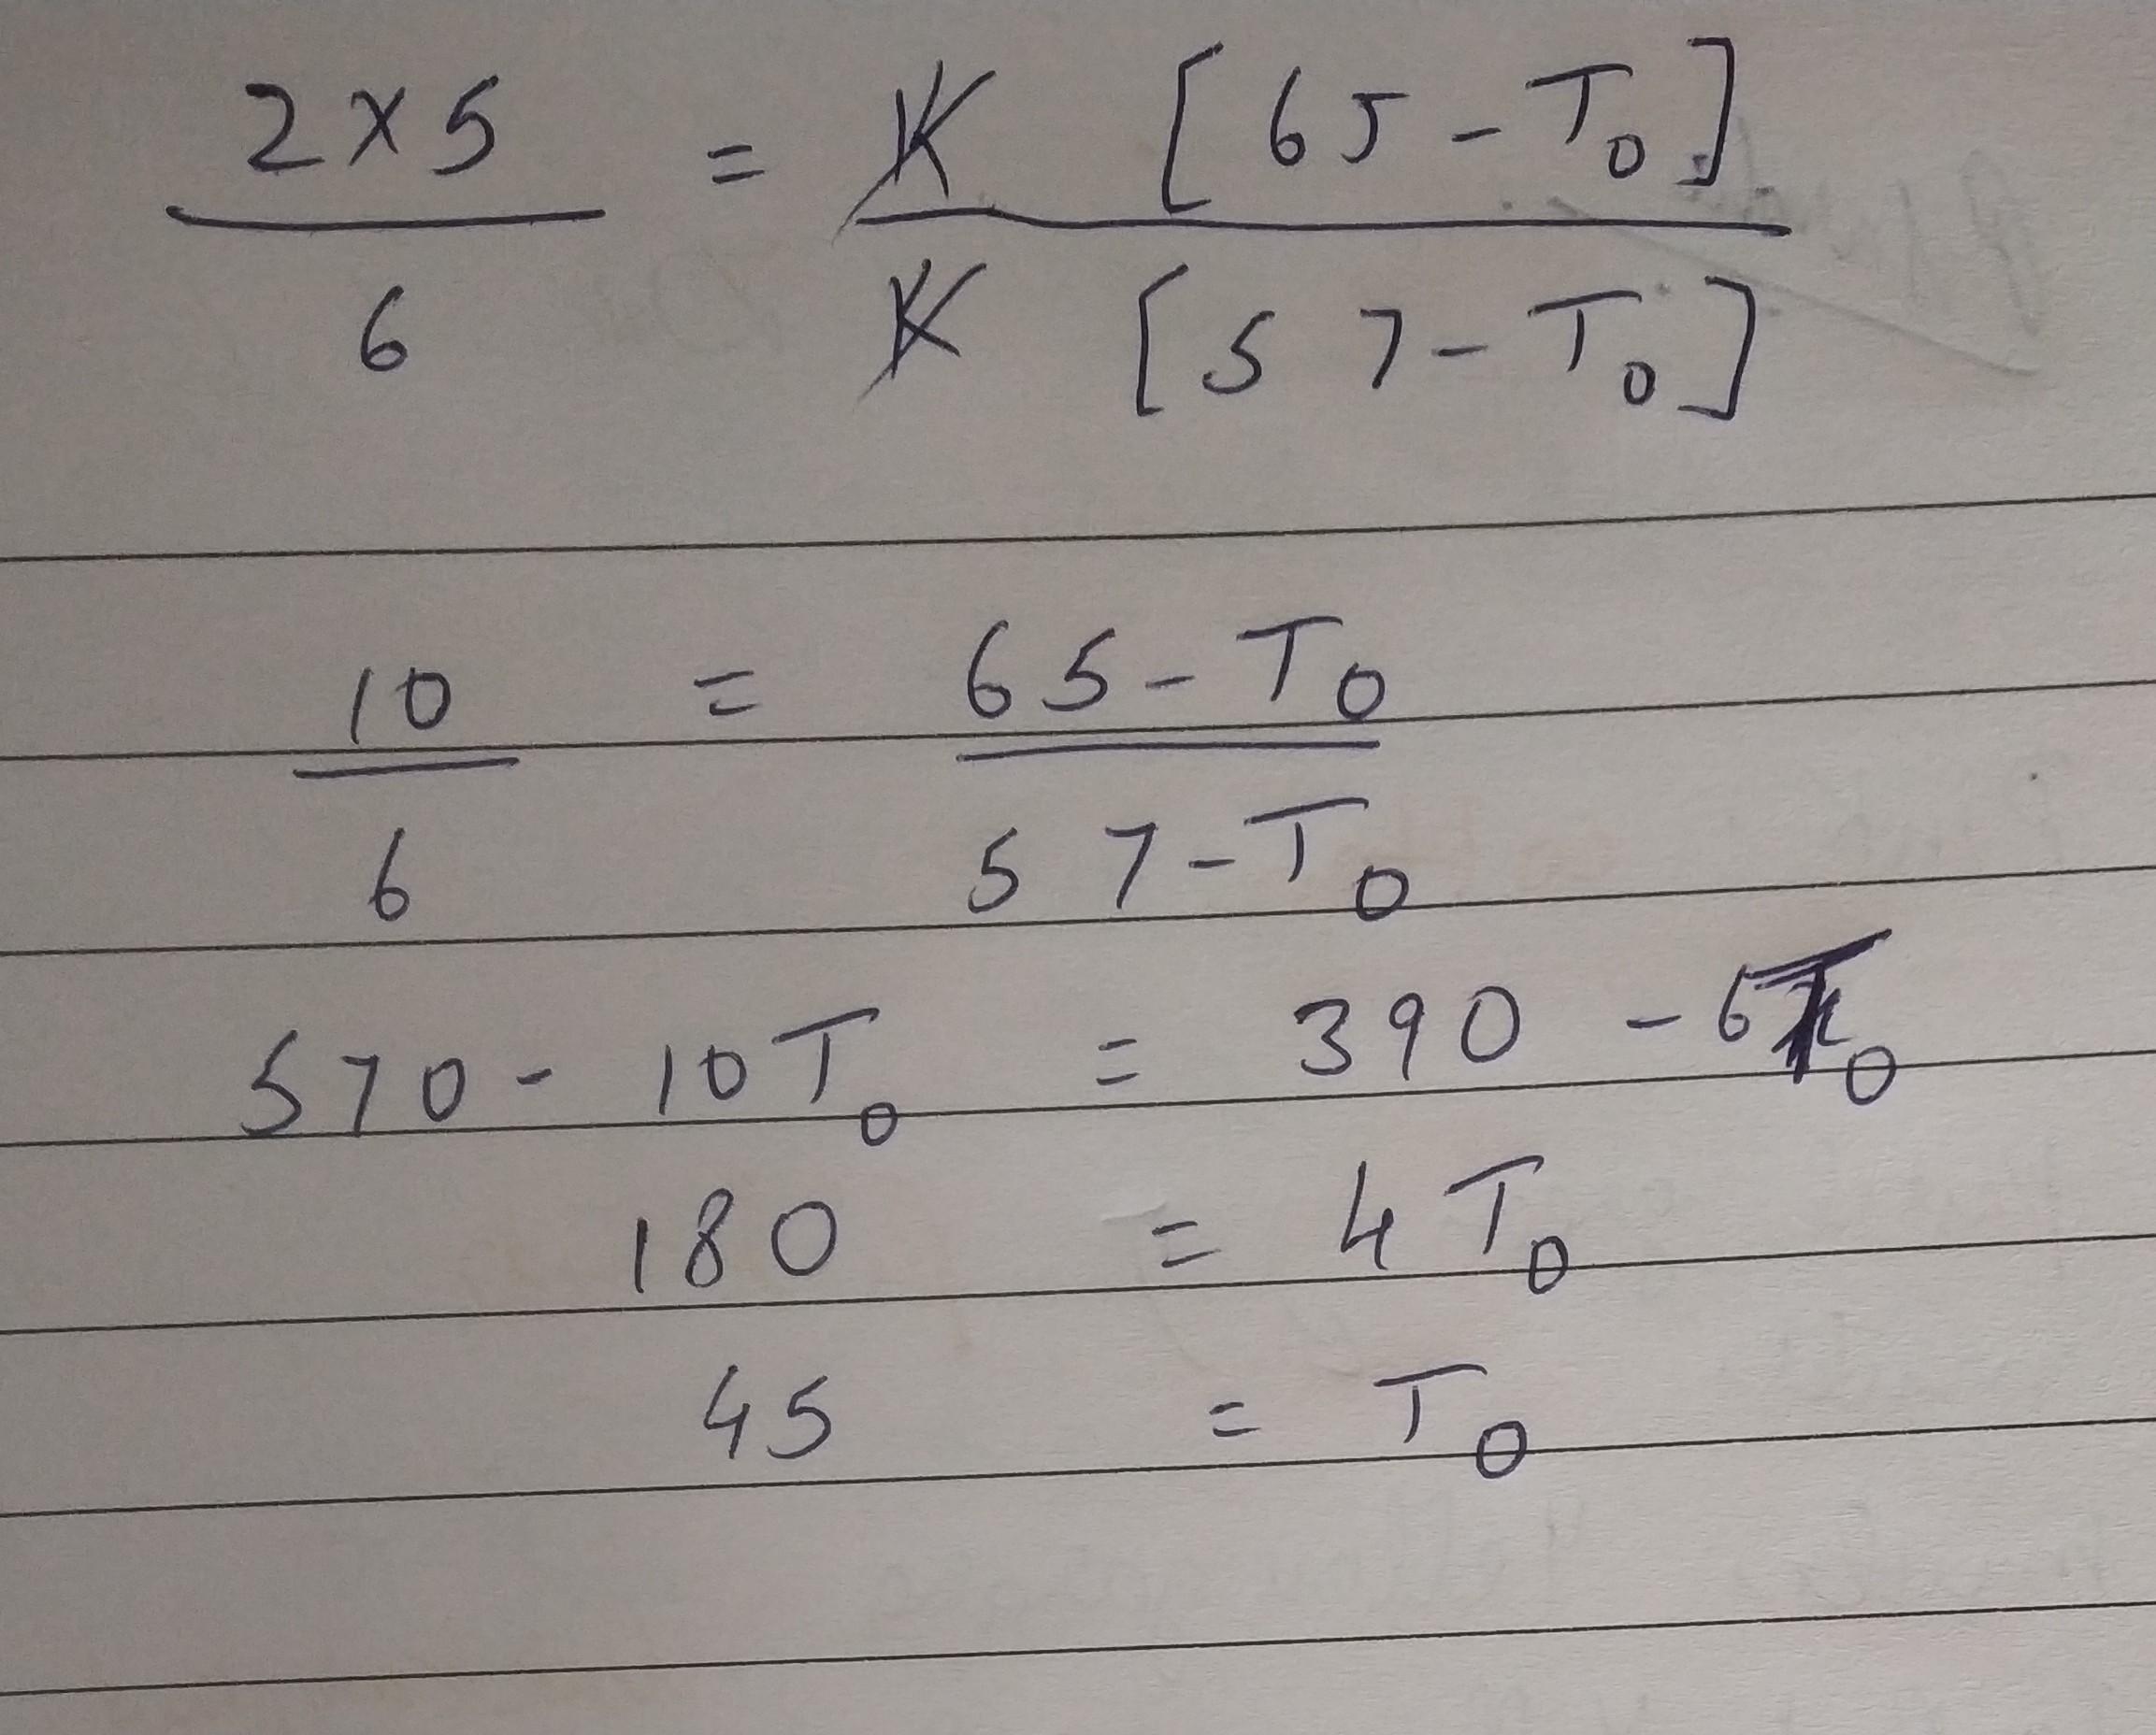 2 × 5 = K [65 - T₀]
6 K [57 - T₀]
10 = 65 - T₀
6 57 - T₀
570 - 10T₀ = 390 - 6T₀
180 = 4T₀
45 = T₀